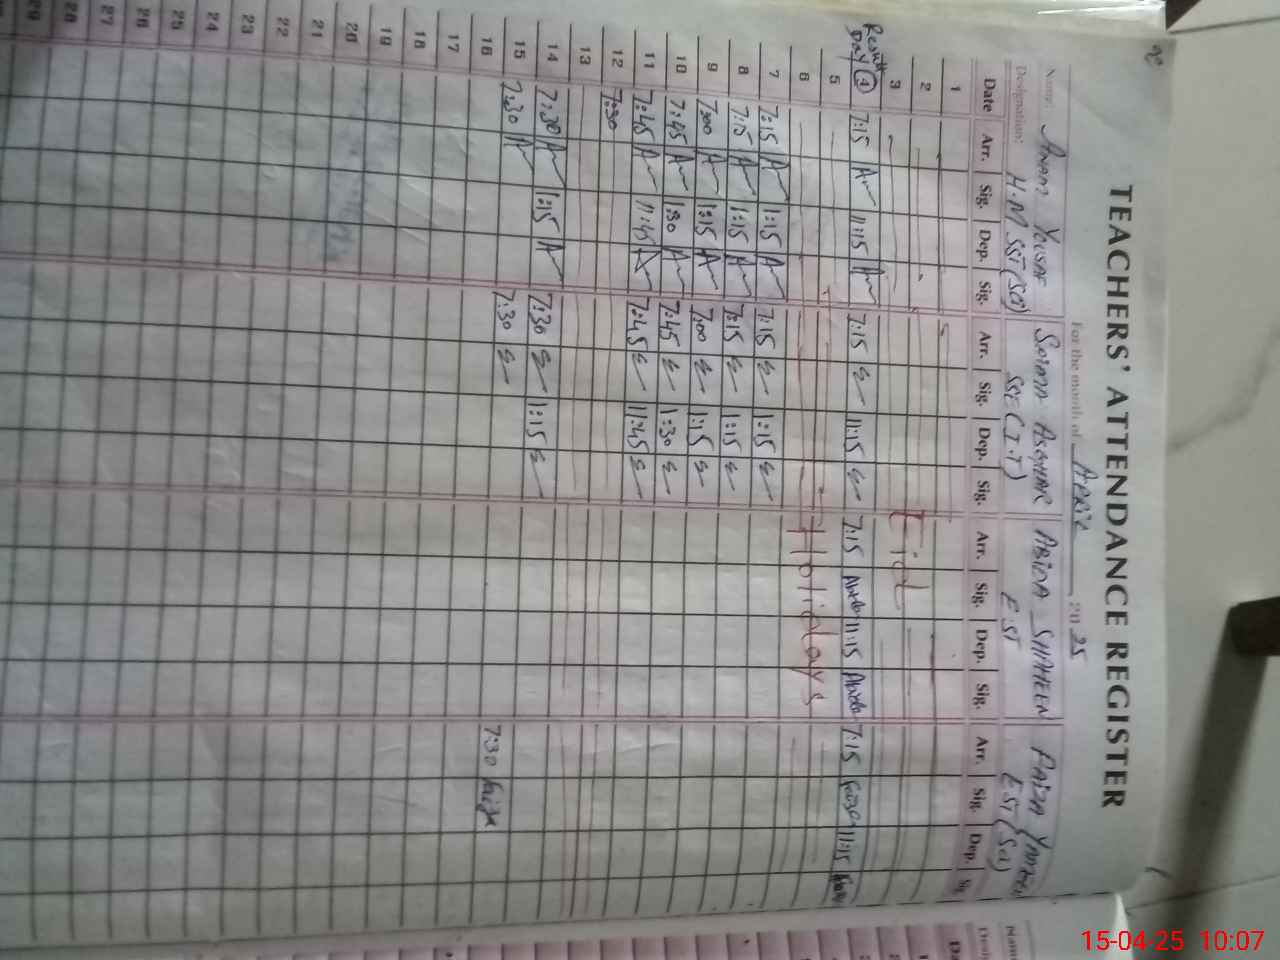 TEACHERS' ATTENDANCE REGISTER
For the month of April 2025
Name: Anam Yousaf Soima Asghar Abida Shaheen Faiza
Designation: H.M SST(Sci) SSE(I.T) EST EST(Sci)
Date Arr. Sig. Dep. Sig. Arr. Sig. Dep. Sig. Arr. Sig. Dep. Sig. Arr. Sig. Dep.
1
2
3 Eid
Result Day 4 7:15 11:15 7:15 11:15 7:15 11:15 7:15 11:15
5
6 Holidays
7 7:15 1:15 7:15 1:15
8 7:15 1:15 7:15 1:15
9 7:00 1:15 7:00 1:15
10 7:45 1:30 7:45 1:30
11 7:45 11:45 7:45 11:45
12 7:30
13
14 7:30 1:15 7:30 1:15
15 7:30 7:30 7:30 Faiza
16
17
18
19
20
21
22
23
24
25
26
27
28
29
15-04-25 10:07